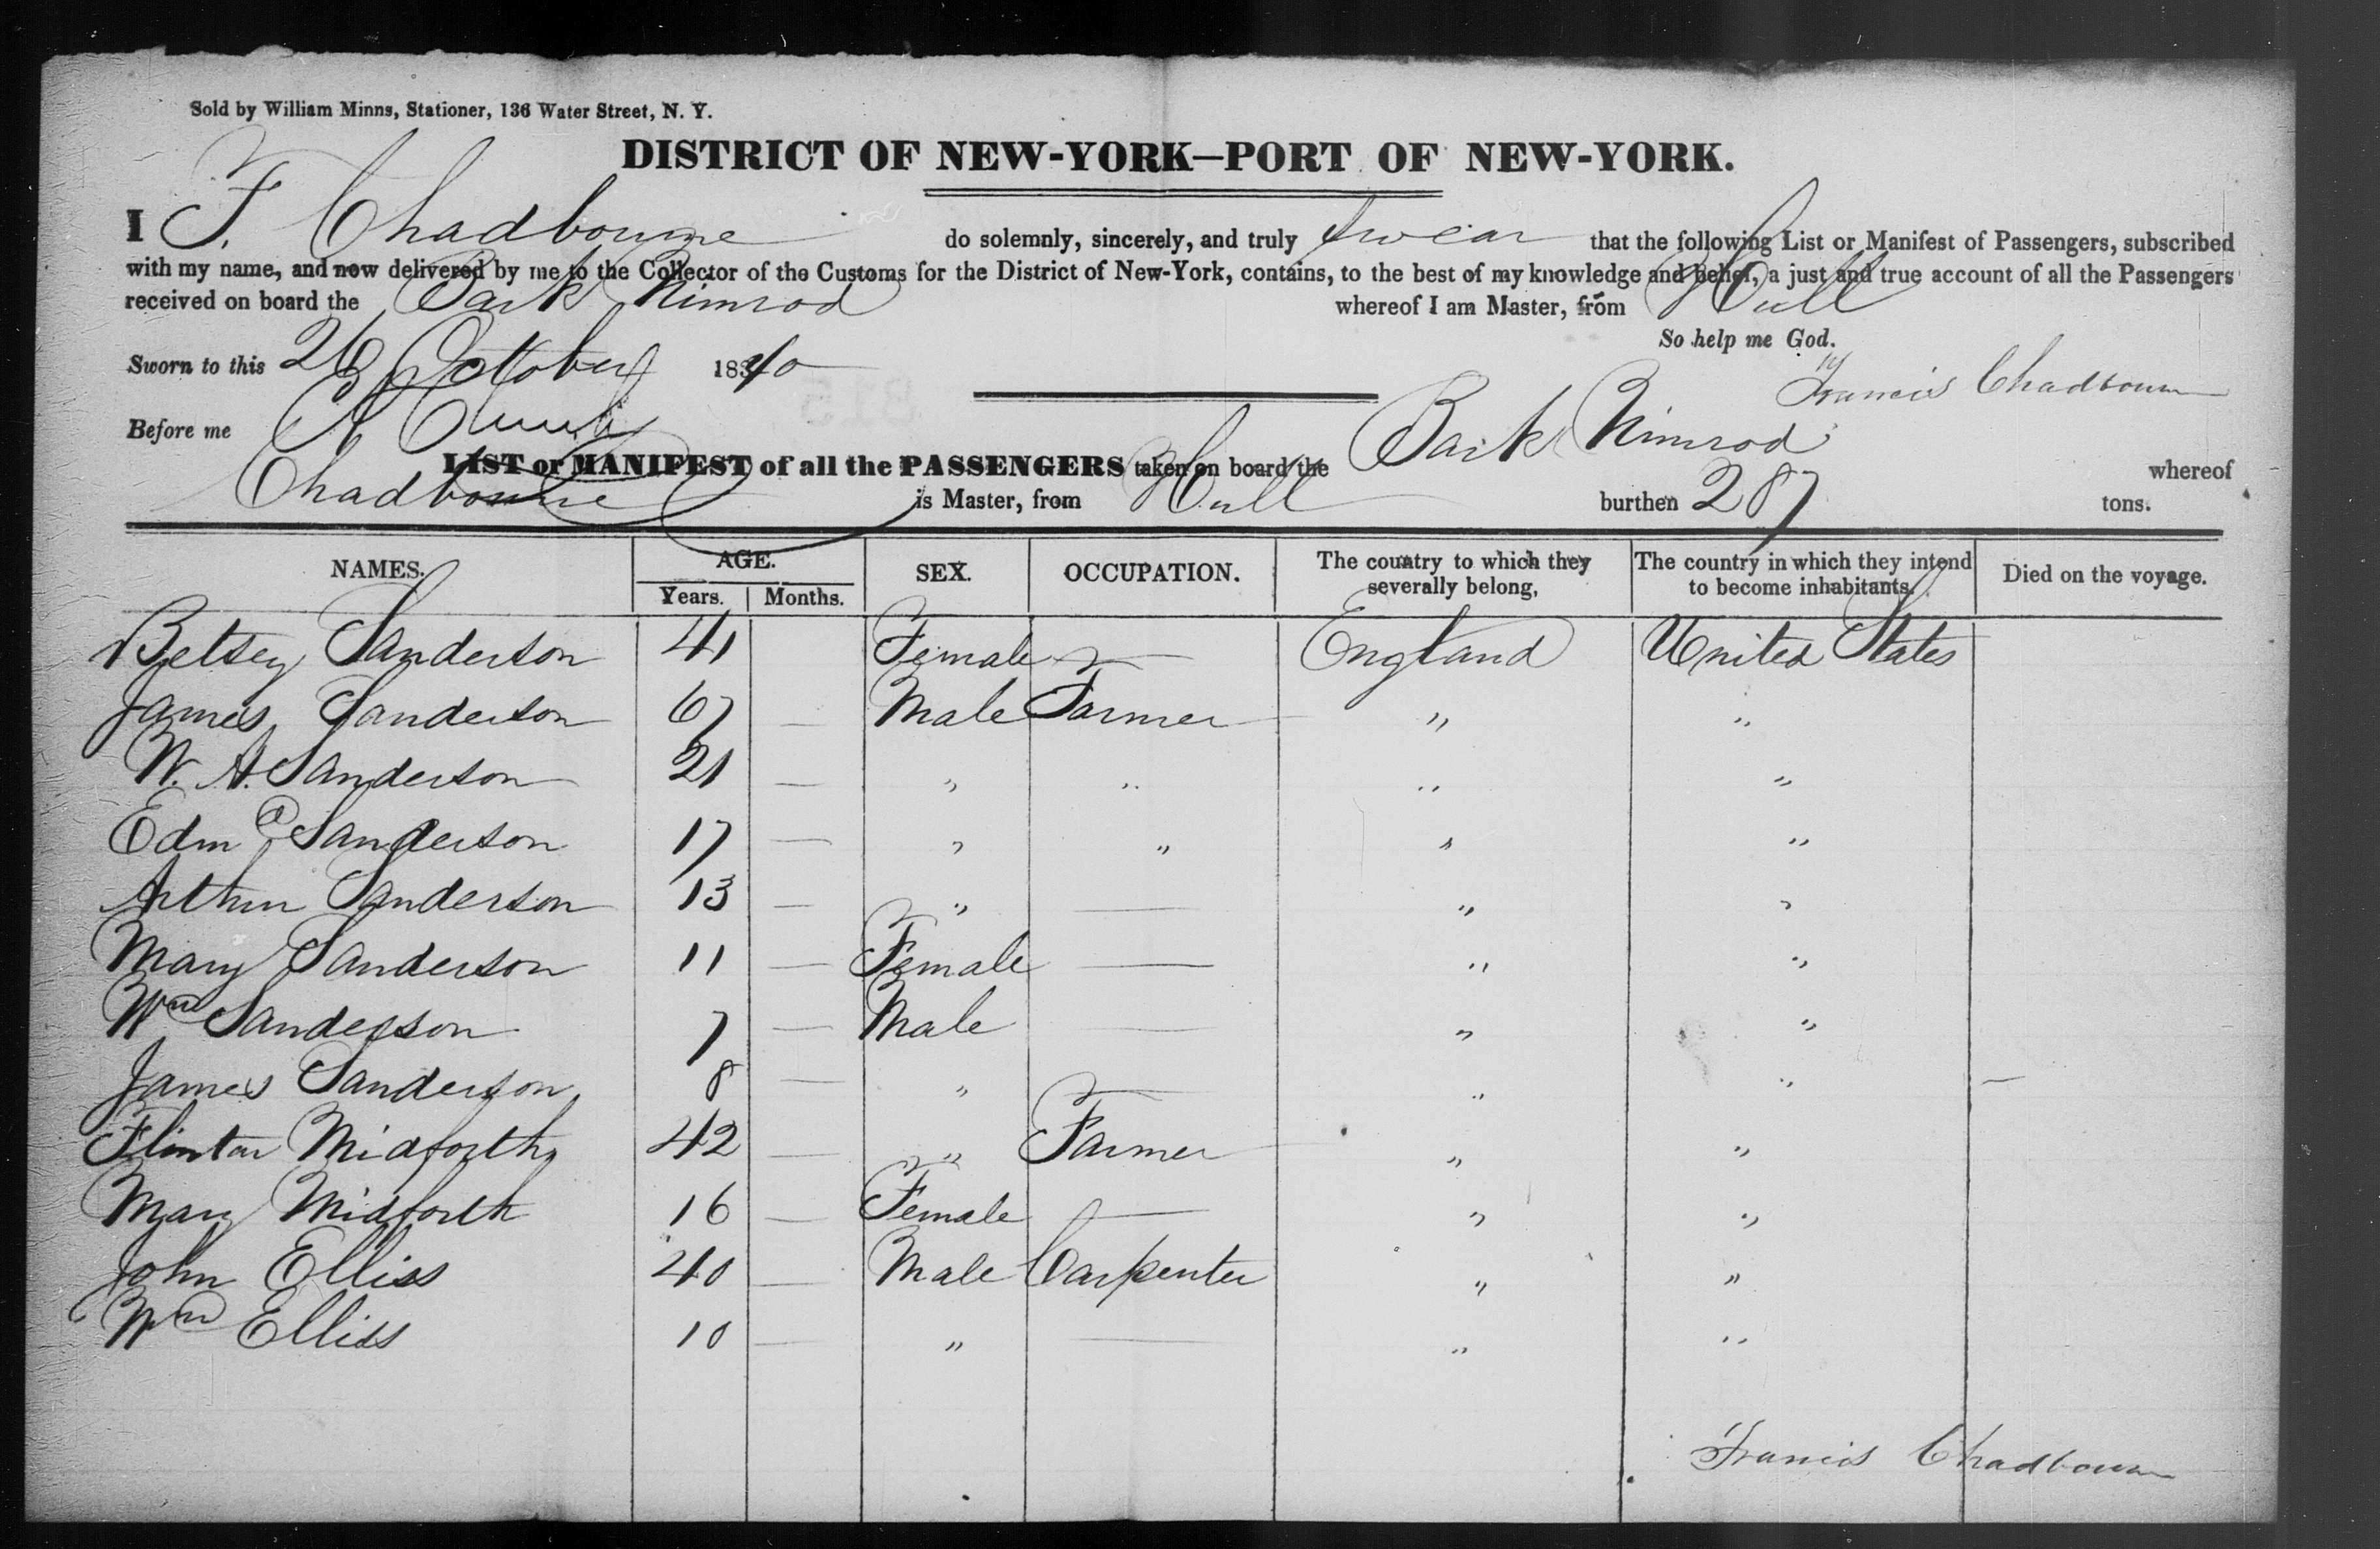 Sold by William Minns, Stationer, 136 Water Street, N. Y.
DISTRICT OF NEW-YORK—PORT OF NEW-YORK.
I F. Chadbourne do solemnly, sincerely, and truly swear that the following List or Manifest of Passengers, subscribed
with my name, and now delivered by me to the Collector of the Customs for the District of New-York, contains, to the best of my knowledge and belief, a just and true account of all the Passengers
received on board the Bark Nimrod whereof I am Master, from Hull
So help me God.
Sworn to this 26 October 1840
Francis Chadbourn
Before me
LIST or MANIFEST of all the PASSENGERS taken on board the Bark Nimrod whereof
Chadbourne is Master, from Hull burthen 287 tons.
NAMES. AGE. SEX. OCCUPATION. The country to which they severally belong, The country in which they intend to become inhabitants. Died on the voyage.
Years. Months.
Betsey Sanderson 41 Female — England United States
James Sanderson 67 — Male Farmer " "
W. A. Sanderson 21 — " " " "
Edmd Sanderson 17 — " " " "
Arthur Sanderson 13 — " — " "
Mary Sanderson 11 — Female — " "
Wm Sanderson 7 — Male — " "
James Sanderson 8 — " — " " —
Flintor Midforth 42 — " Farmer " "
Mary Midforth 16 — Female — " "
John Elliss 40 — Male Carpenter " "
Wm Elliss 10 — " — " "
Francis Chadbourn